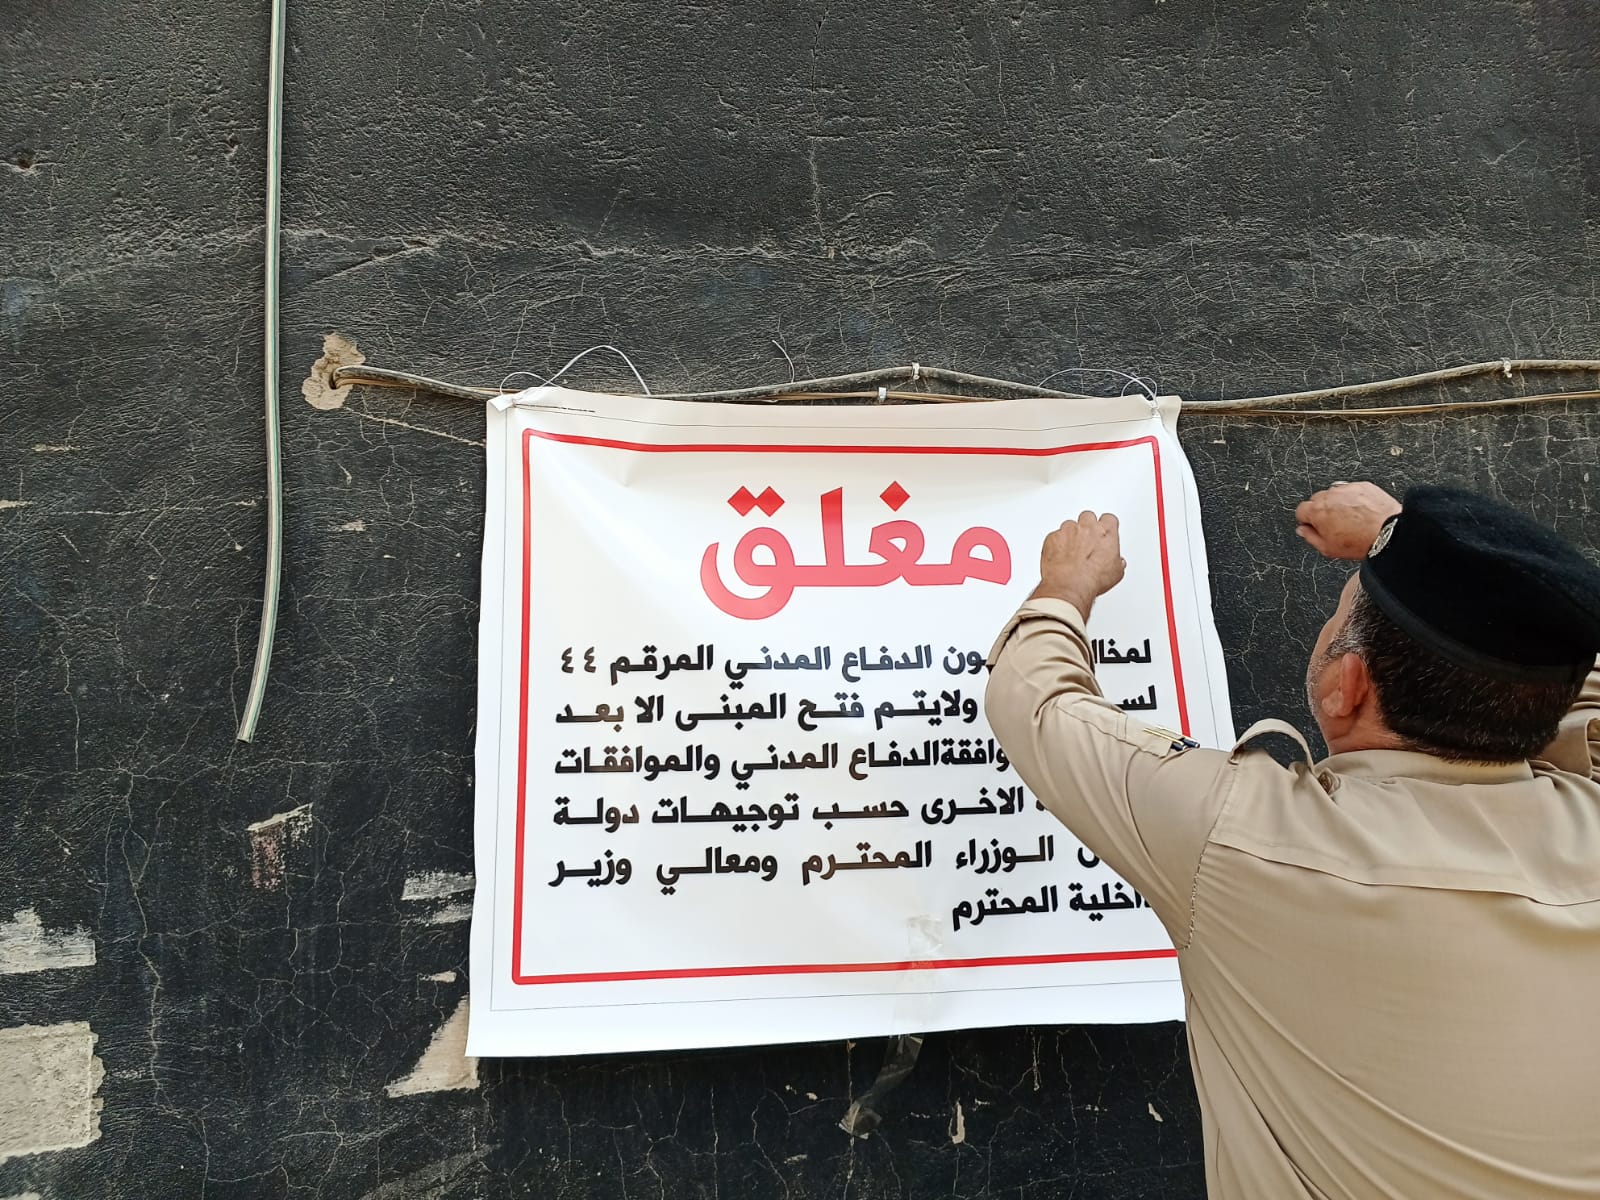 مغلق
الدفاع المدني المرقم ٤٤
ولايتم فتح المبنى الا بعد
الدفاع المدني والموافقات
الاخرى حسب توجيهات دولة
الوزراء المحترم ومعالي وزير
المحترم